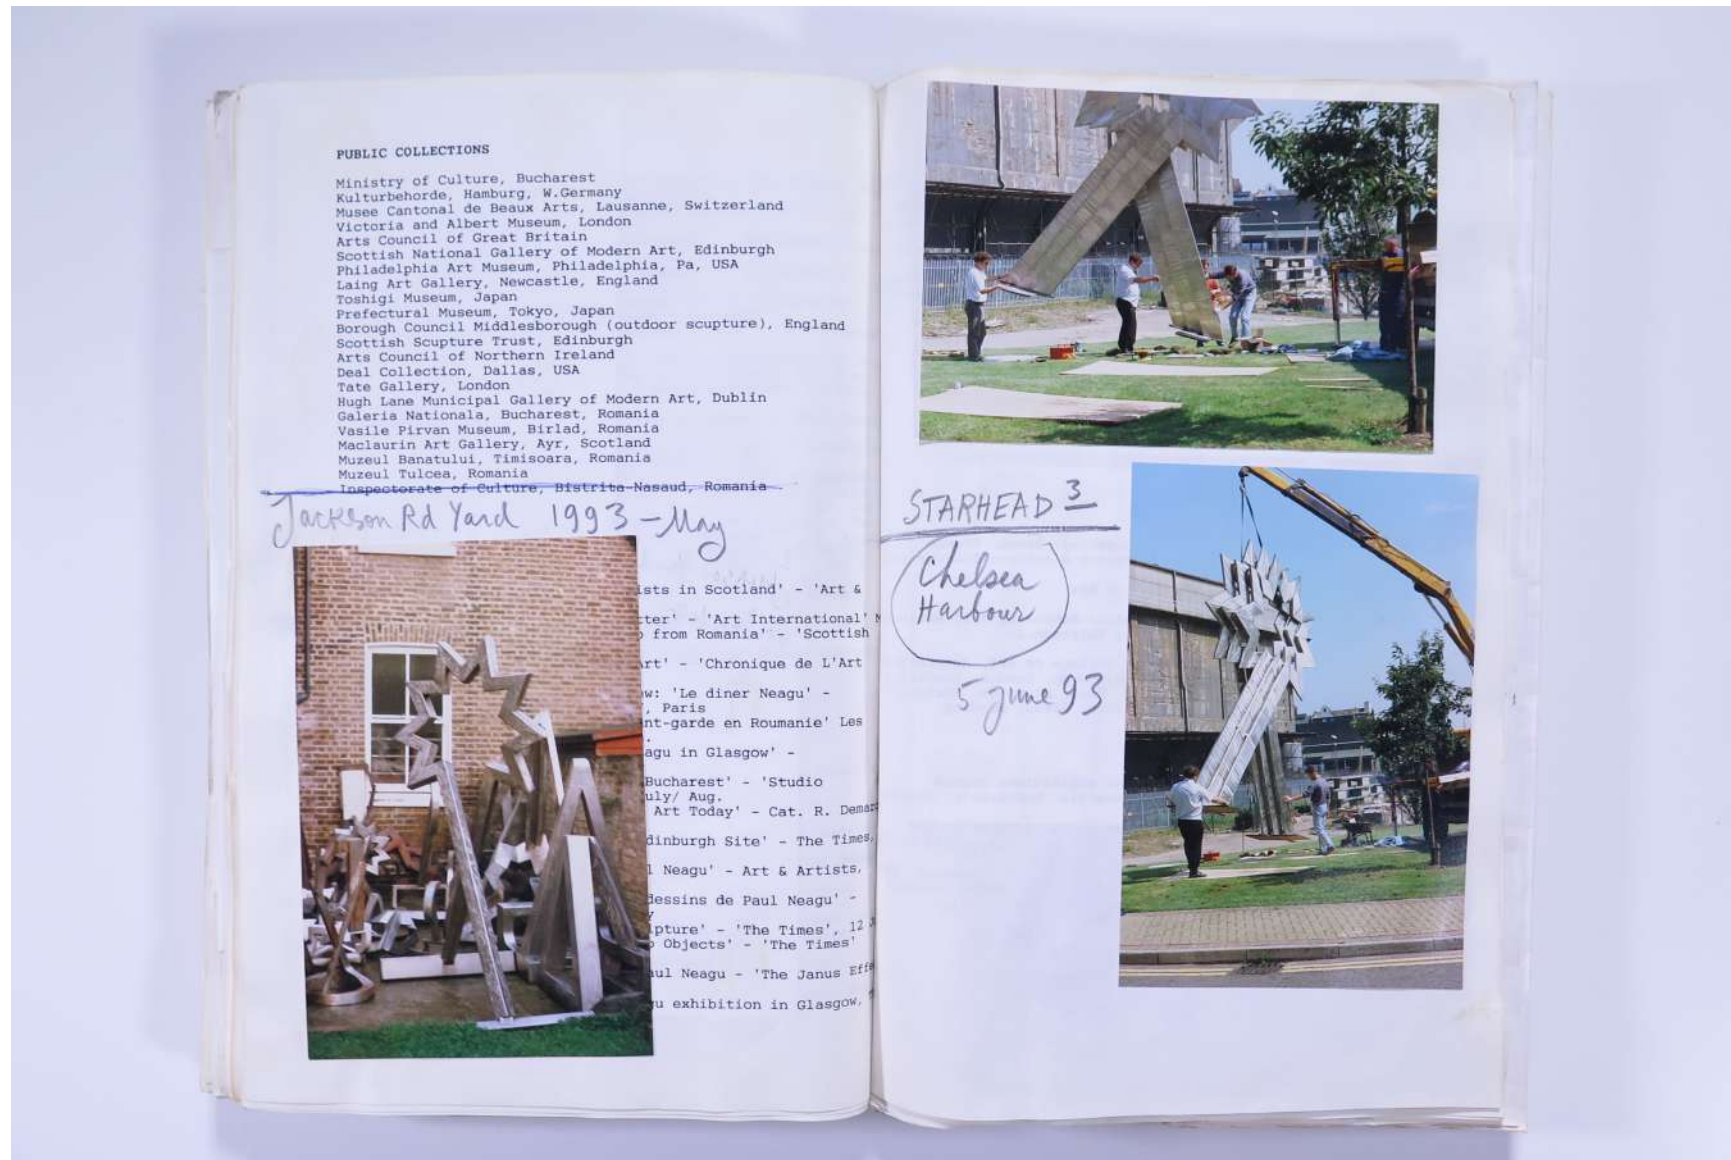 PUBLIC COLLECTIONS
Ministry of Culture, Bucharest
Kulturbehorde, Hamburg, W.Germany
Musee Cantonal de Beaux Arts, Lausanne, Switzerland
Victoria and Albert Museum, London
Arts Council of Great Britain
Scottish National Gallery of Modern Art, Edinburgh
Philadelphia Art Museum, Philadelphia, Pa, USA
Laing Art Gallery, Newcastle, England
Toshigi Museum, Japan
Prefectural Museum, Tokyo, Japan
Borough Council Middlesborough (outdoor scupture), England
Scottish Scupture Trust, Edinburgh
Arts Council of Northern Ireland
Deal Collection, Dallas, USA
Tate Gallery, London
Hugh Lane Municipal Gallery of Modern Art, Dublin
Galeria Nationala, Bucharest, Romania
Vasile Pirvan Museum, Birlad, Romania
Maclaurin Art Gallery, Ayr, Scotland
Muzeul Banatului, Timisoara, Romania
Muzeul Tulcea, Romania
Inspectorate of Culture, Bistrita-Nasaud, Romania
Jackson Rd Yard 1993 - May
ists in Scotland' - 'Art &
ter' - 'Art International'
from Romania' - 'Scottish
rt' - 'Chronique de L'Art
w: 'Le diner Neagu' -
, Paris
nt-garde en Roumanie' Les
.
agu in Glasgow' -
Bucharest' - 'Studio
uly/ Aug.
Art Today' - Cat. R. Demar
dinburgh Site' - The Times,
l Neagu' - Art & Artists,
dessins de Paul Neagu' -
y
lpture' - 'The Times', 12
Objects' - 'The Times'
aul Neagu - 'The Janus Effe
u exhibition in Glasgow,
STARHEAD 3
Chelsea
Harbour
5 June 93